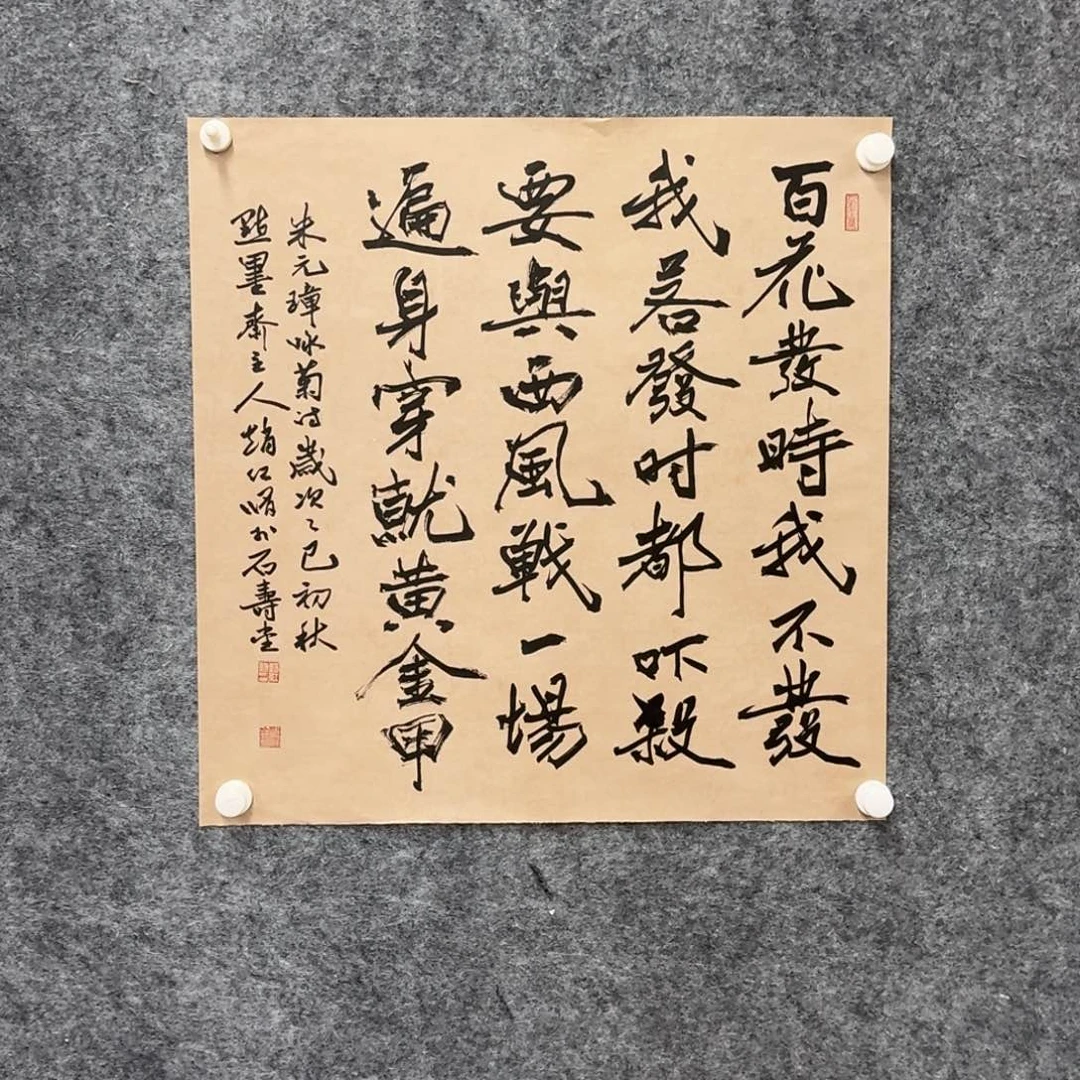 百花發時我不發
我若發时都吓殺
要與西風戰一場
遍身穿就黄金甲
朱元璋咏菊诗歲次乙巳初秋
點墨齋主人趙仁晴於石壽堂